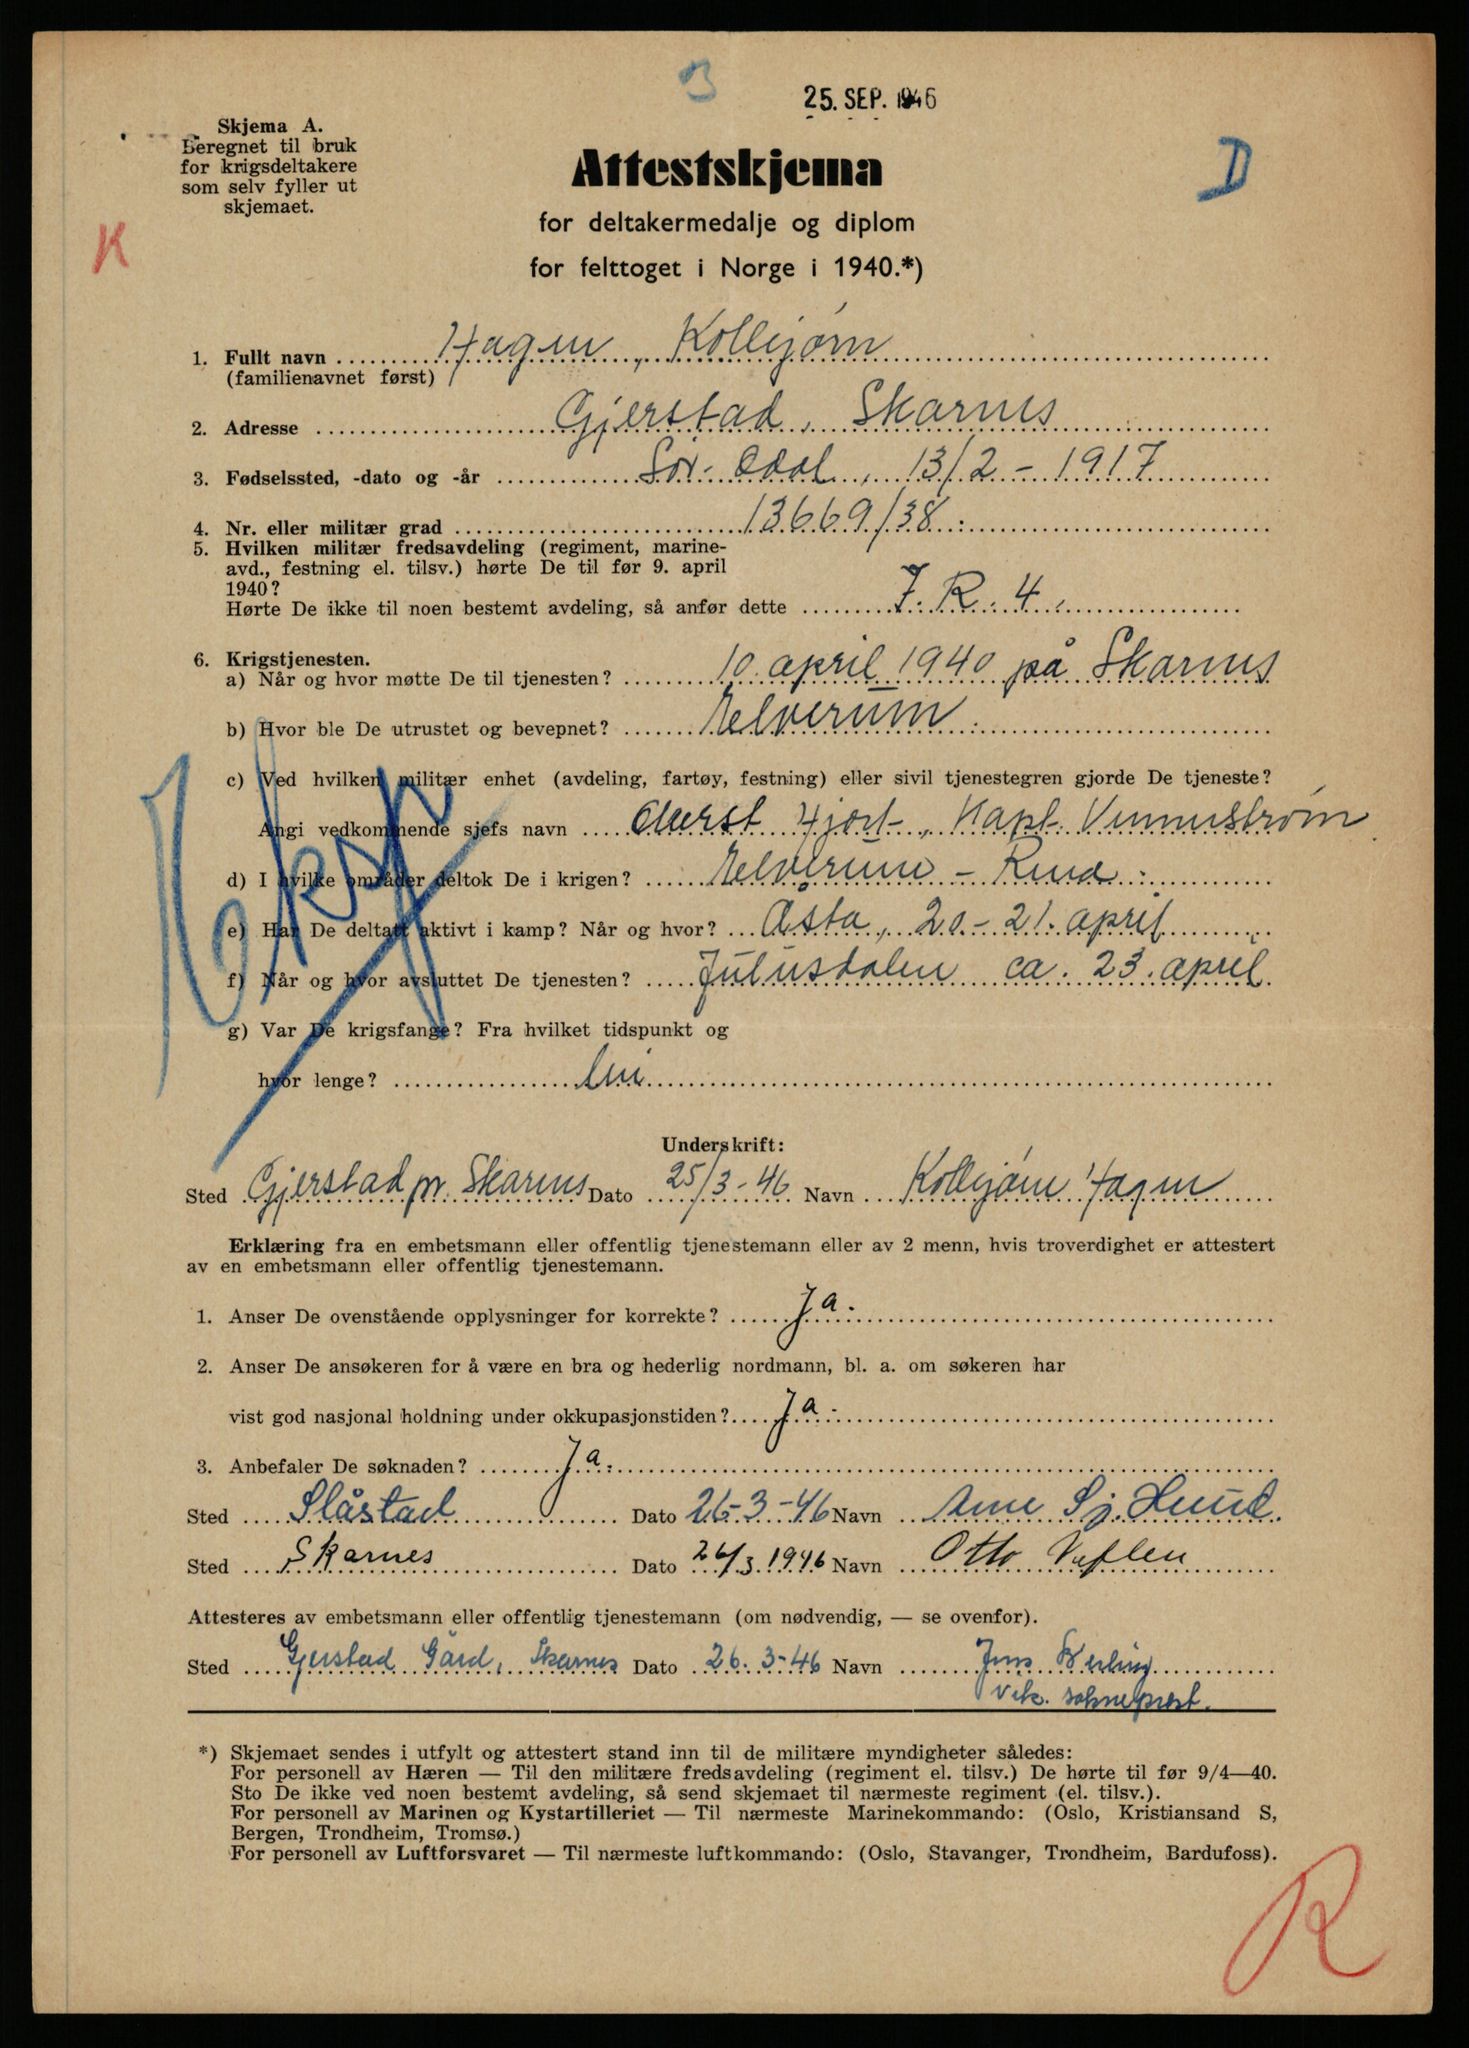 B
25. SEP. 1946
Skjema A.
Beregnet til bruk
for krigsdeltakere
som selv fyller ut
skjemaet.
D
K
Attestskjema
for deltakermedalje og diplom
for felttoget i Norge i 1940.*)
1. Fullt navn Hagen, Kolbjørn
(familienavnet først)
2. Adresse Gjerstad, Skarnes
3. Fødselssted, -dato og -år Sør-Odal, 13/2 - 1917
4. Nr. eller militær grad 13669/38.
5. Hvilken militær fredsavdeling (regiment, marine-
avd., festning el. tilsv.) hørte De til før 9. april
1940?
Hørte De ikke til noen bestemt avdeling, så anfør dette I. R. 4.
6. Krigstjenesten.
a) Når og hvor møtte De til tjenesten? 10. april 1940 på Skarnes
b) Hvor ble De utrustet og bevepnet? Elverum.
c) Ved hvilken militær enhet (avdeling, fartøy, festning) eller sivil tjenestegren gjorde De tjeneste?
Angi vedkommende sjefs navn Oberst Hjort, Kapt. Vennerstrøm
d) I hvilke områder deltok De i krigen? Elverum - Rena.
e) Har De deltatt aktivt i kamp? Når og hvor? Åsta, 20.-21. april
f) Når og hvor avsluttet De tjenesten? Julusdalen ca. 23. april.
g) Var De krigsfange? Fra hvilket tidspunkt og
hvor lenge? Nei
Underskrift:
Sted Gjerstad pr. Skarnes Dato 25/3-46 Navn Kolbjørn Hagen
Erklæring fra en embetsmann eller offentlig tjenestemann eller av 2 menn, hvis troverdighet er attestert
av en embetsmann eller offentlig tjenestemann.
1. Anser De ovenstående opplysninger for korrekte? Ja.
2. Anser De ansøkeren for å være en bra og hederlig nordmann, bl. a. om søkeren har
vist god nasjonal holdning under okkupasjonstiden? Ja.
3. Anbefaler De søknaden? Ja.
Sted Slåstad Dato 26-3-46 Navn Arne Sj.
Sted Skarnes Dato 26/3 1946 Navn Otto
Attesteres av embetsmann eller offentlig tjenestemann (om nødvendig, — se ovenfor).
Sted Gjerstad Gård, Skarnes Dato 26. 3-46 Navn Jens
vik. sokneprest.
*) Skjemaet sendes i utfylt og attestert stand inn til de militære myndigheter således:
For personell av Hæren — Til den militære fredsavdeling (regiment el. tilsv.) De hørte til før 9/4—40.
Sto De ikke ved noen bestemt avdeling, så send skjemaet til nærmeste regiment (el. tilsv.).
For personell av Marinen og Kystartilleriet — Til nærmeste Marinekommando: (Oslo, Kristiansand S,
Bergen, Trondheim, Tromsø.)
For personell av Luftforsvaret — Til nærmeste luftkommando: (Oslo, Stavanger, Trondheim, Bardufoss).
R